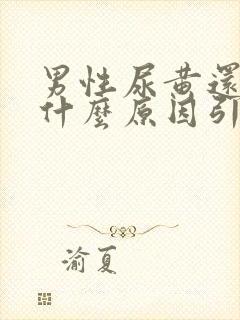 男性尿黃還
什麼原因引
渝夏